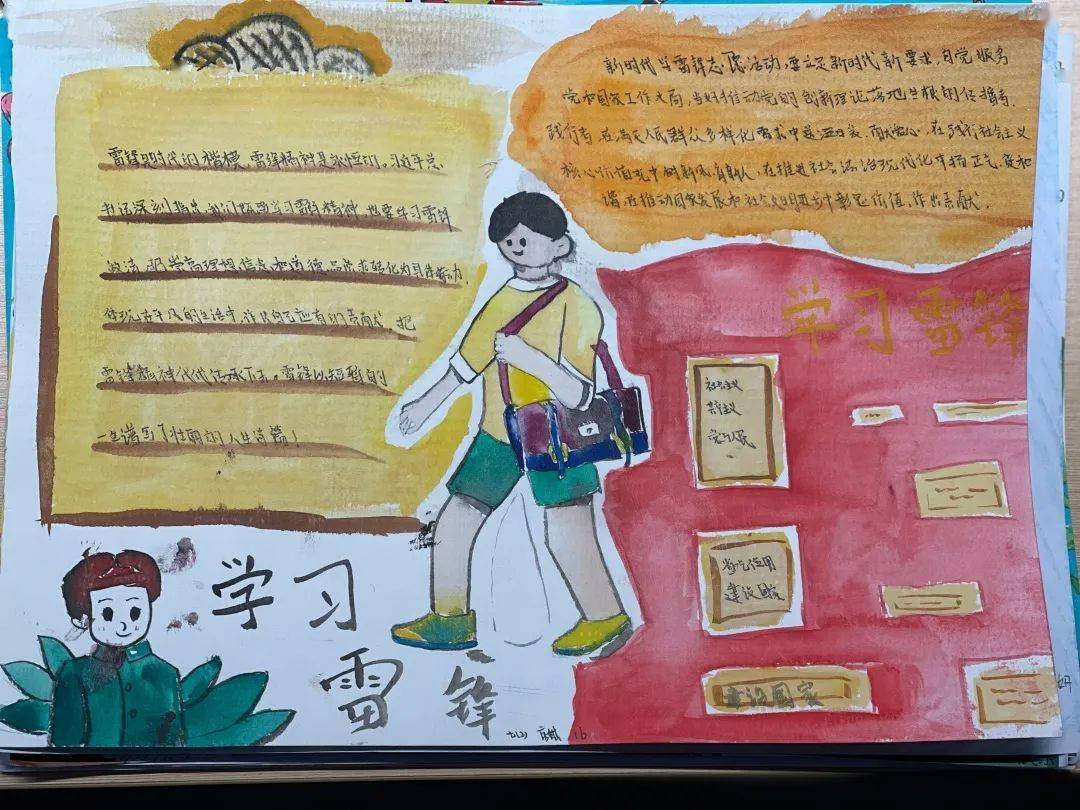 雷锋是时代的楷模,雷锋精神是永恒的。习近平总
书记深刻指出,我们既要学习雷锋精神,也要学习雷锋
做法,把崇高理想信念和道德品质追求转化为具体行动,
体现在平凡的生活中,作出自己应有的贡献,把
雷锋精神代代传承下去。雷锋以短暂的
一生谱写了壮丽的人生诗篇!
新时代学雷锋志愿活动,要立足新时代新要求,自觉服务
党和国家工作大局,当好推动党的创新理论落地生根的传播者、
践行者,在满足人民群众多样化需求中送温暖、献爱心,在践行社会主义
核心价值观中树新风,在推进社会治理现代化中扬正气、促和
谐,为推动国家发展和社会文明进步彰显价值,作出贡献。
学习雷锋
社会主义
建设国家
建设国家
学习
雷锋